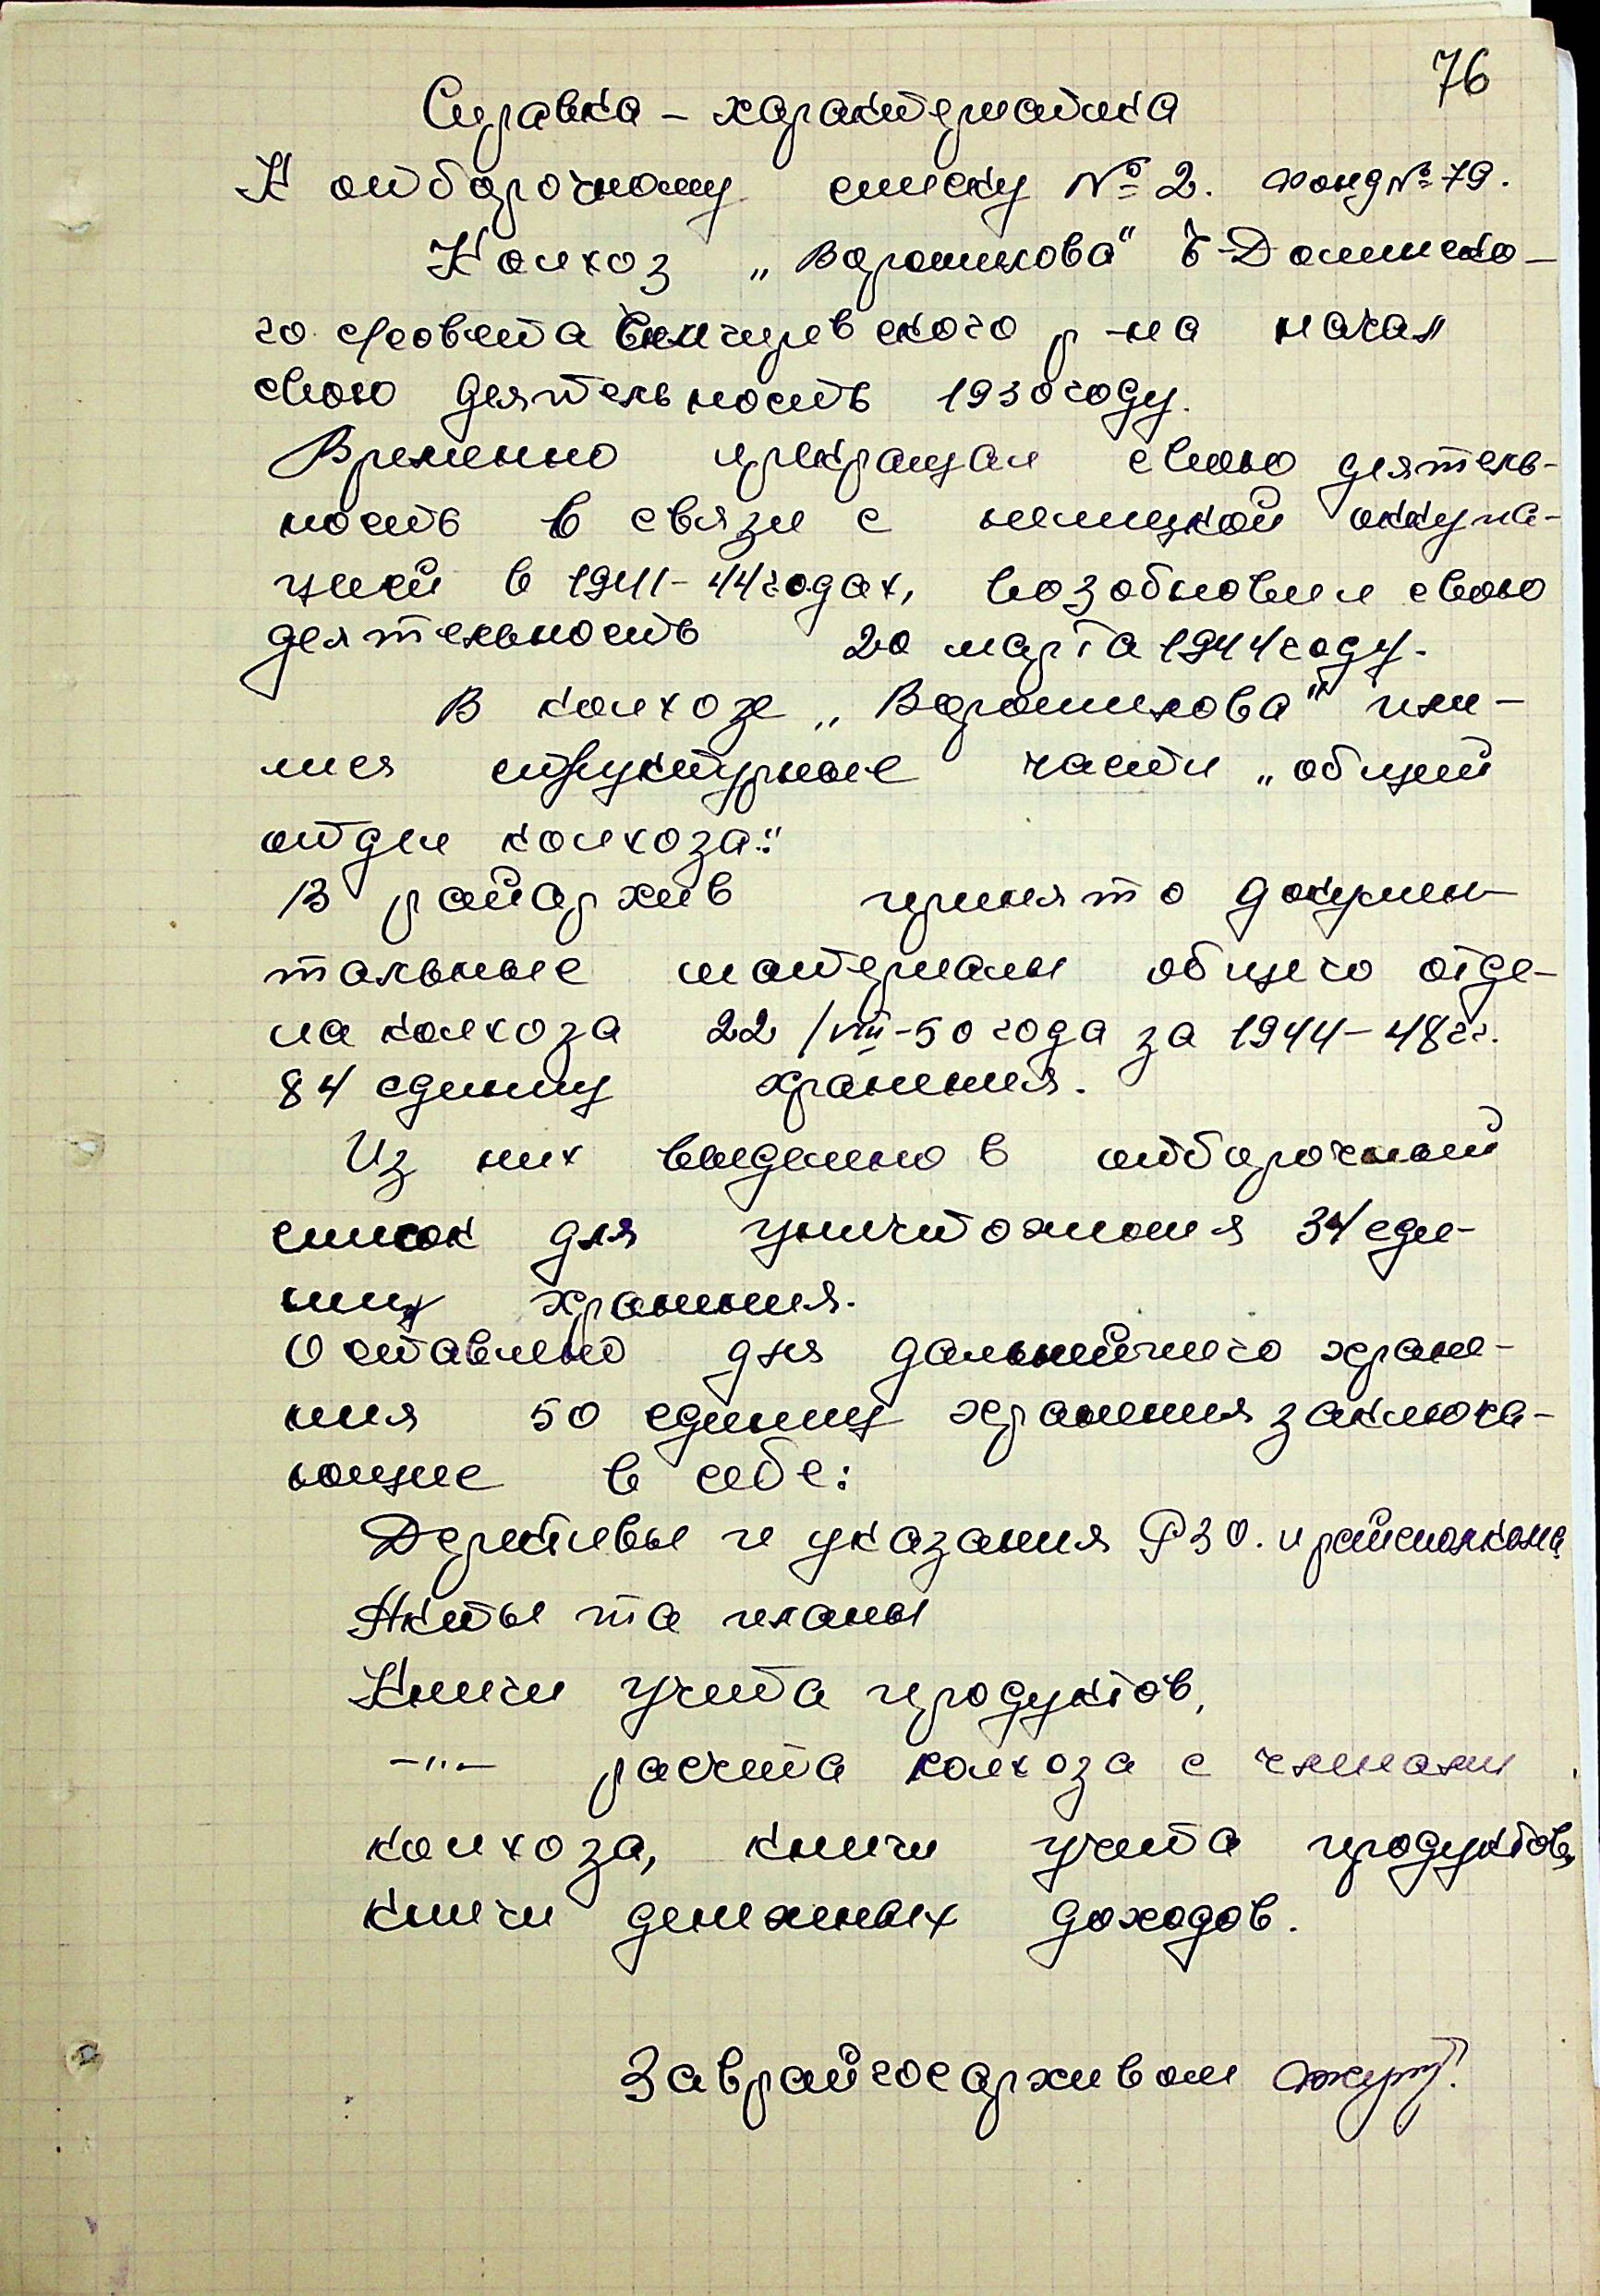 76
Справка – характеристика
К отборочному списку № 2. Фонд № 79.
Колхоз „Ворошилова" Б-Долинско-
го с/совета р-на начал
свою деятельность 1930 году.
Временно прекращал свою деятель-
ность в связи с немецкой оккупа-
цией в 1941–44 годах, возобновил свою
деятельность 20 марта 1944 году.
В колхозе „Ворошилова" име-
лися структурные части „общий
отдел колхоза."
В райархив принято докумен-
тальные материалы общего отде-
ла колхоза 22/VIII-50 года за 1944–48 гг.
84 единиц хранения.
Из них выделено в отборочный
список для уничтожения 34 еди-
ниц хранения.
Оставлено для дальнейшего хране-
ния 50 единиц хранения заключа-
ющие в себе:
Дерективы и указания РЗО. и райисполкома
Акты та планы
Книги учета продуктов,
–"– расчета колхоза с членами
колхоза, книги учета продуктов,
книги денежных доходов.
Заврайгосархивом